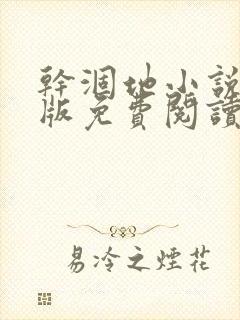 幹涸地小說
版免費閱讀
易冷之煙花